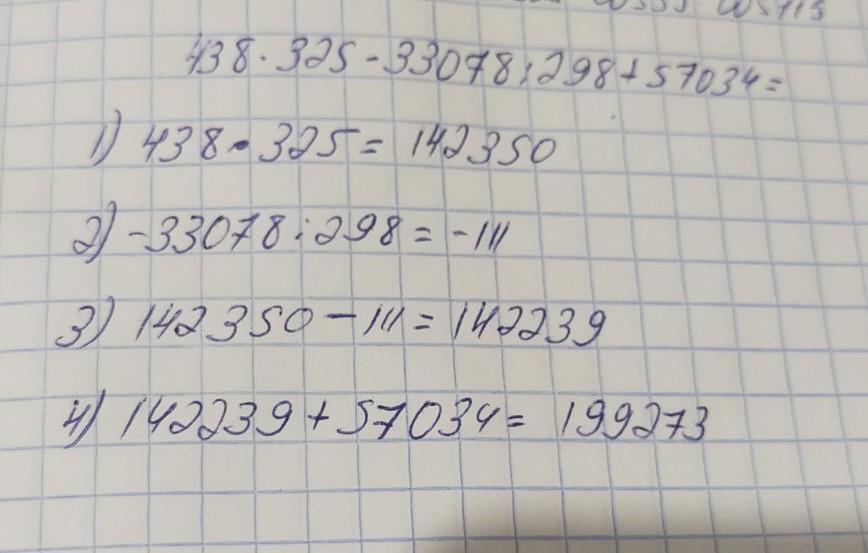 438·325-33078:298+57034=
1) 438·325=142350
2) -33078:298=-111
3) 142350-111=142239
4) 142239+57034=199273